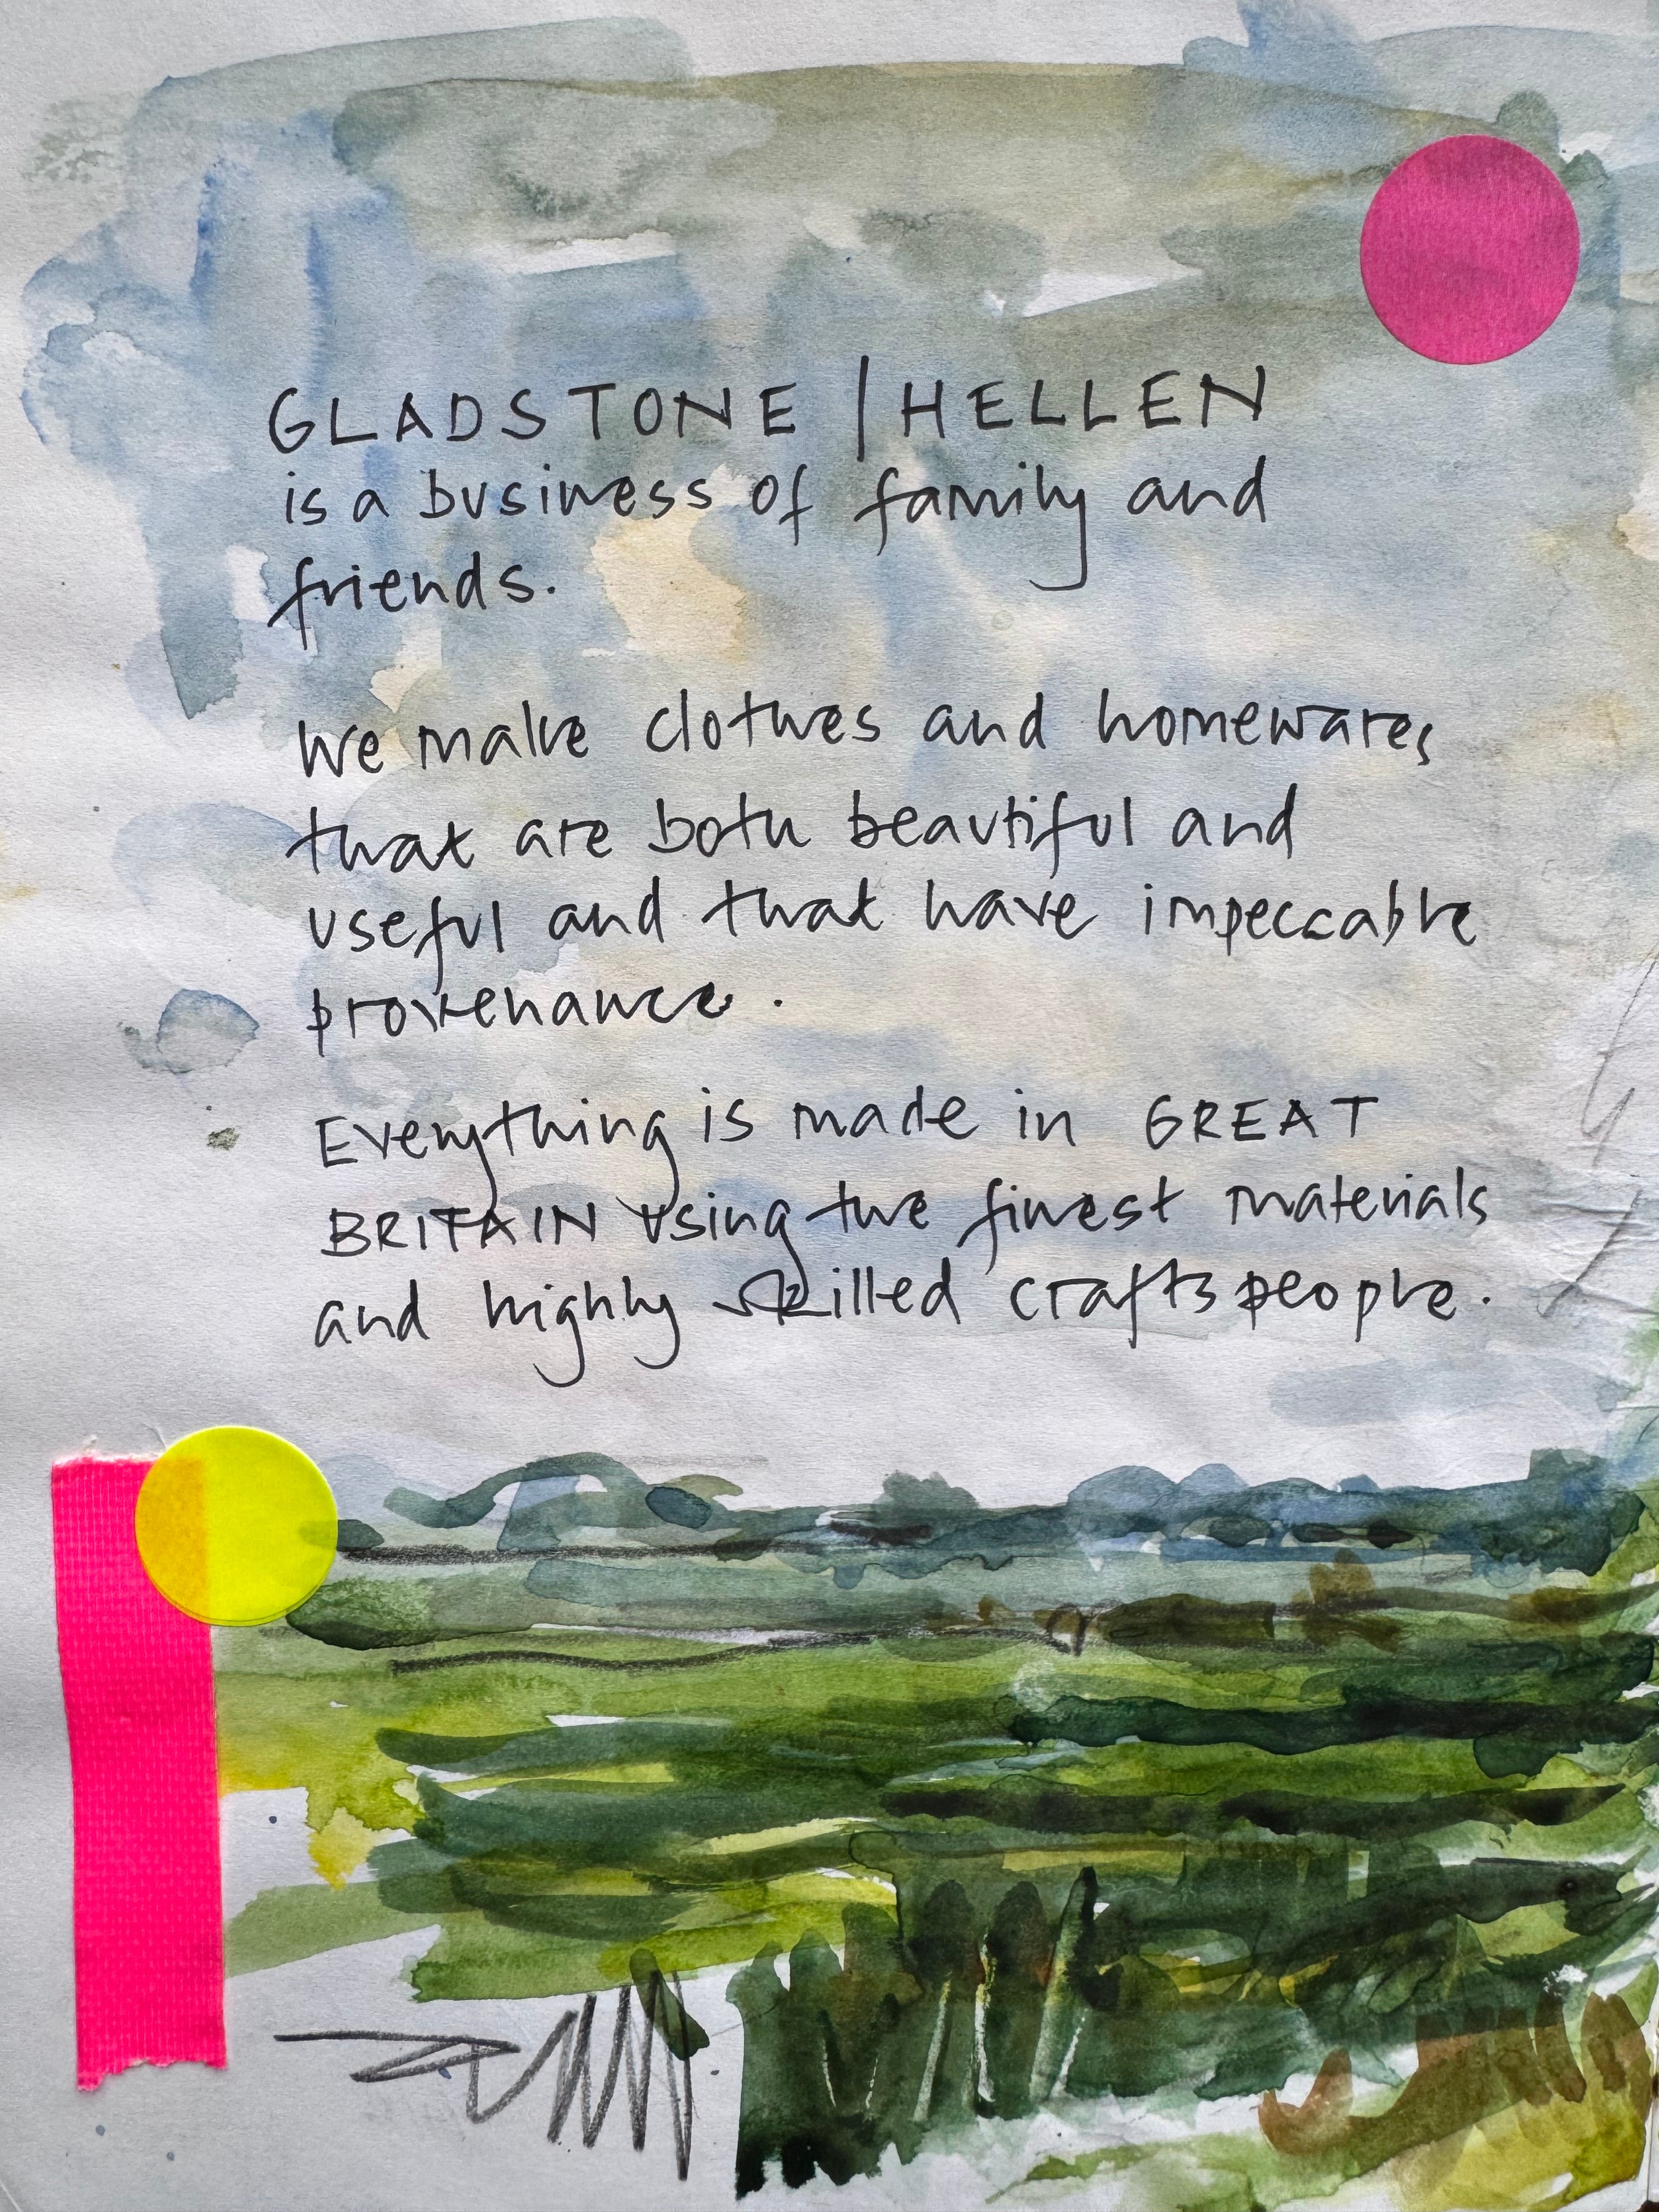 GLADSTONE | HELLEN
is a business of family and
friends.
We make clothes and homewares
that are both beautiful and
useful and that have impeccable
provenance.
Everything is made in GREAT
BRITAIN using the finest materials
and highly skilled craftspeople.